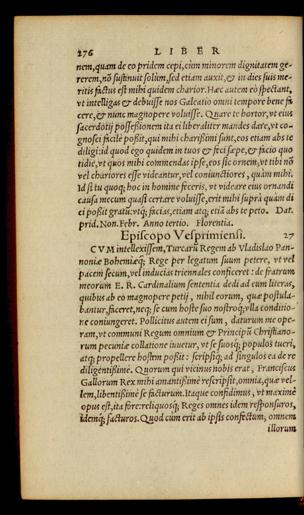 276 LIBER
nem, quam de eo pridem cepi, cùm minorem dignitatem ge-
rerem, nō sustinuit solùm, sed etiam auxit, & in dies suis me-
ritis factus est mihi quidem charior. Hæc autem eò spectant,
vt intelligas & debuisse nos Galeatio omni tempore bene fa-
cere, & nunc magnopere voluisse. Quare te hortor, vt eius
sacerdotij possessionem ita ei liberaliter mandes dare, vt co-
gnosci facilè possit, qui mihi charissimi sunt, eos etiam abs te
diligi: id quod ego quidem in tuos & feci sæpe, & facio quo
tidie, vt quos mihi commendas ipse, eos sic ornem, vt tibi nō
vel chariores esse videantur, vel coniunctiores, quàm mihi.
Id si tu quoq; hoc in homine feceris, vt videare eius ornandi
causa mecum quasi certare voluisse, erit mihi suprà quàm di
ci possit gratū. vtq; facias, etiam atq; etiā abs te peto. Dat.
prid. Non. Febr. Anno tertio. Florentia.
Episcopo Vesprimiensi. 27
CVM intellexissem, Turcarū Regem ab Vladislao Pan-
noniæ Bohemiæq; Rege per legatum suum petere, vt vel
pacem secum, vel inducias triennales conficeret: de fratrum
meorum E. R. Cardinalium sententia dedi ad eum literas,
quibus ab eo magnopere petij, nihil eorum, quæ postula-
bantur, faceret, neq; se cum hoste suo nostroq; vlla conditio-
ne coniungeret. Pollicitus autem ei sum, daturum me ope-
ram, vt communi Regum omnium & Principū Christiano-
rum pecuniæ collatione iuuetur, vt se suosq; populos tueri,
atq; propellere hostem possit: scripsiq; ad singulos ea de re
diligentissimè. Quorum qui vicinus nobis erat, Franciscus
Gallorum Rex mihi amantissimè rescripsit, omnia, quæ vel-
lem, libentissimè se facturum. Itaque confidimus, vt maximè
opus est, ita fore: reliquosq; Reges omnes idem responsuros,
idemq; facturos. Quod cum erit ab ipsis confectum, omnem
illorum